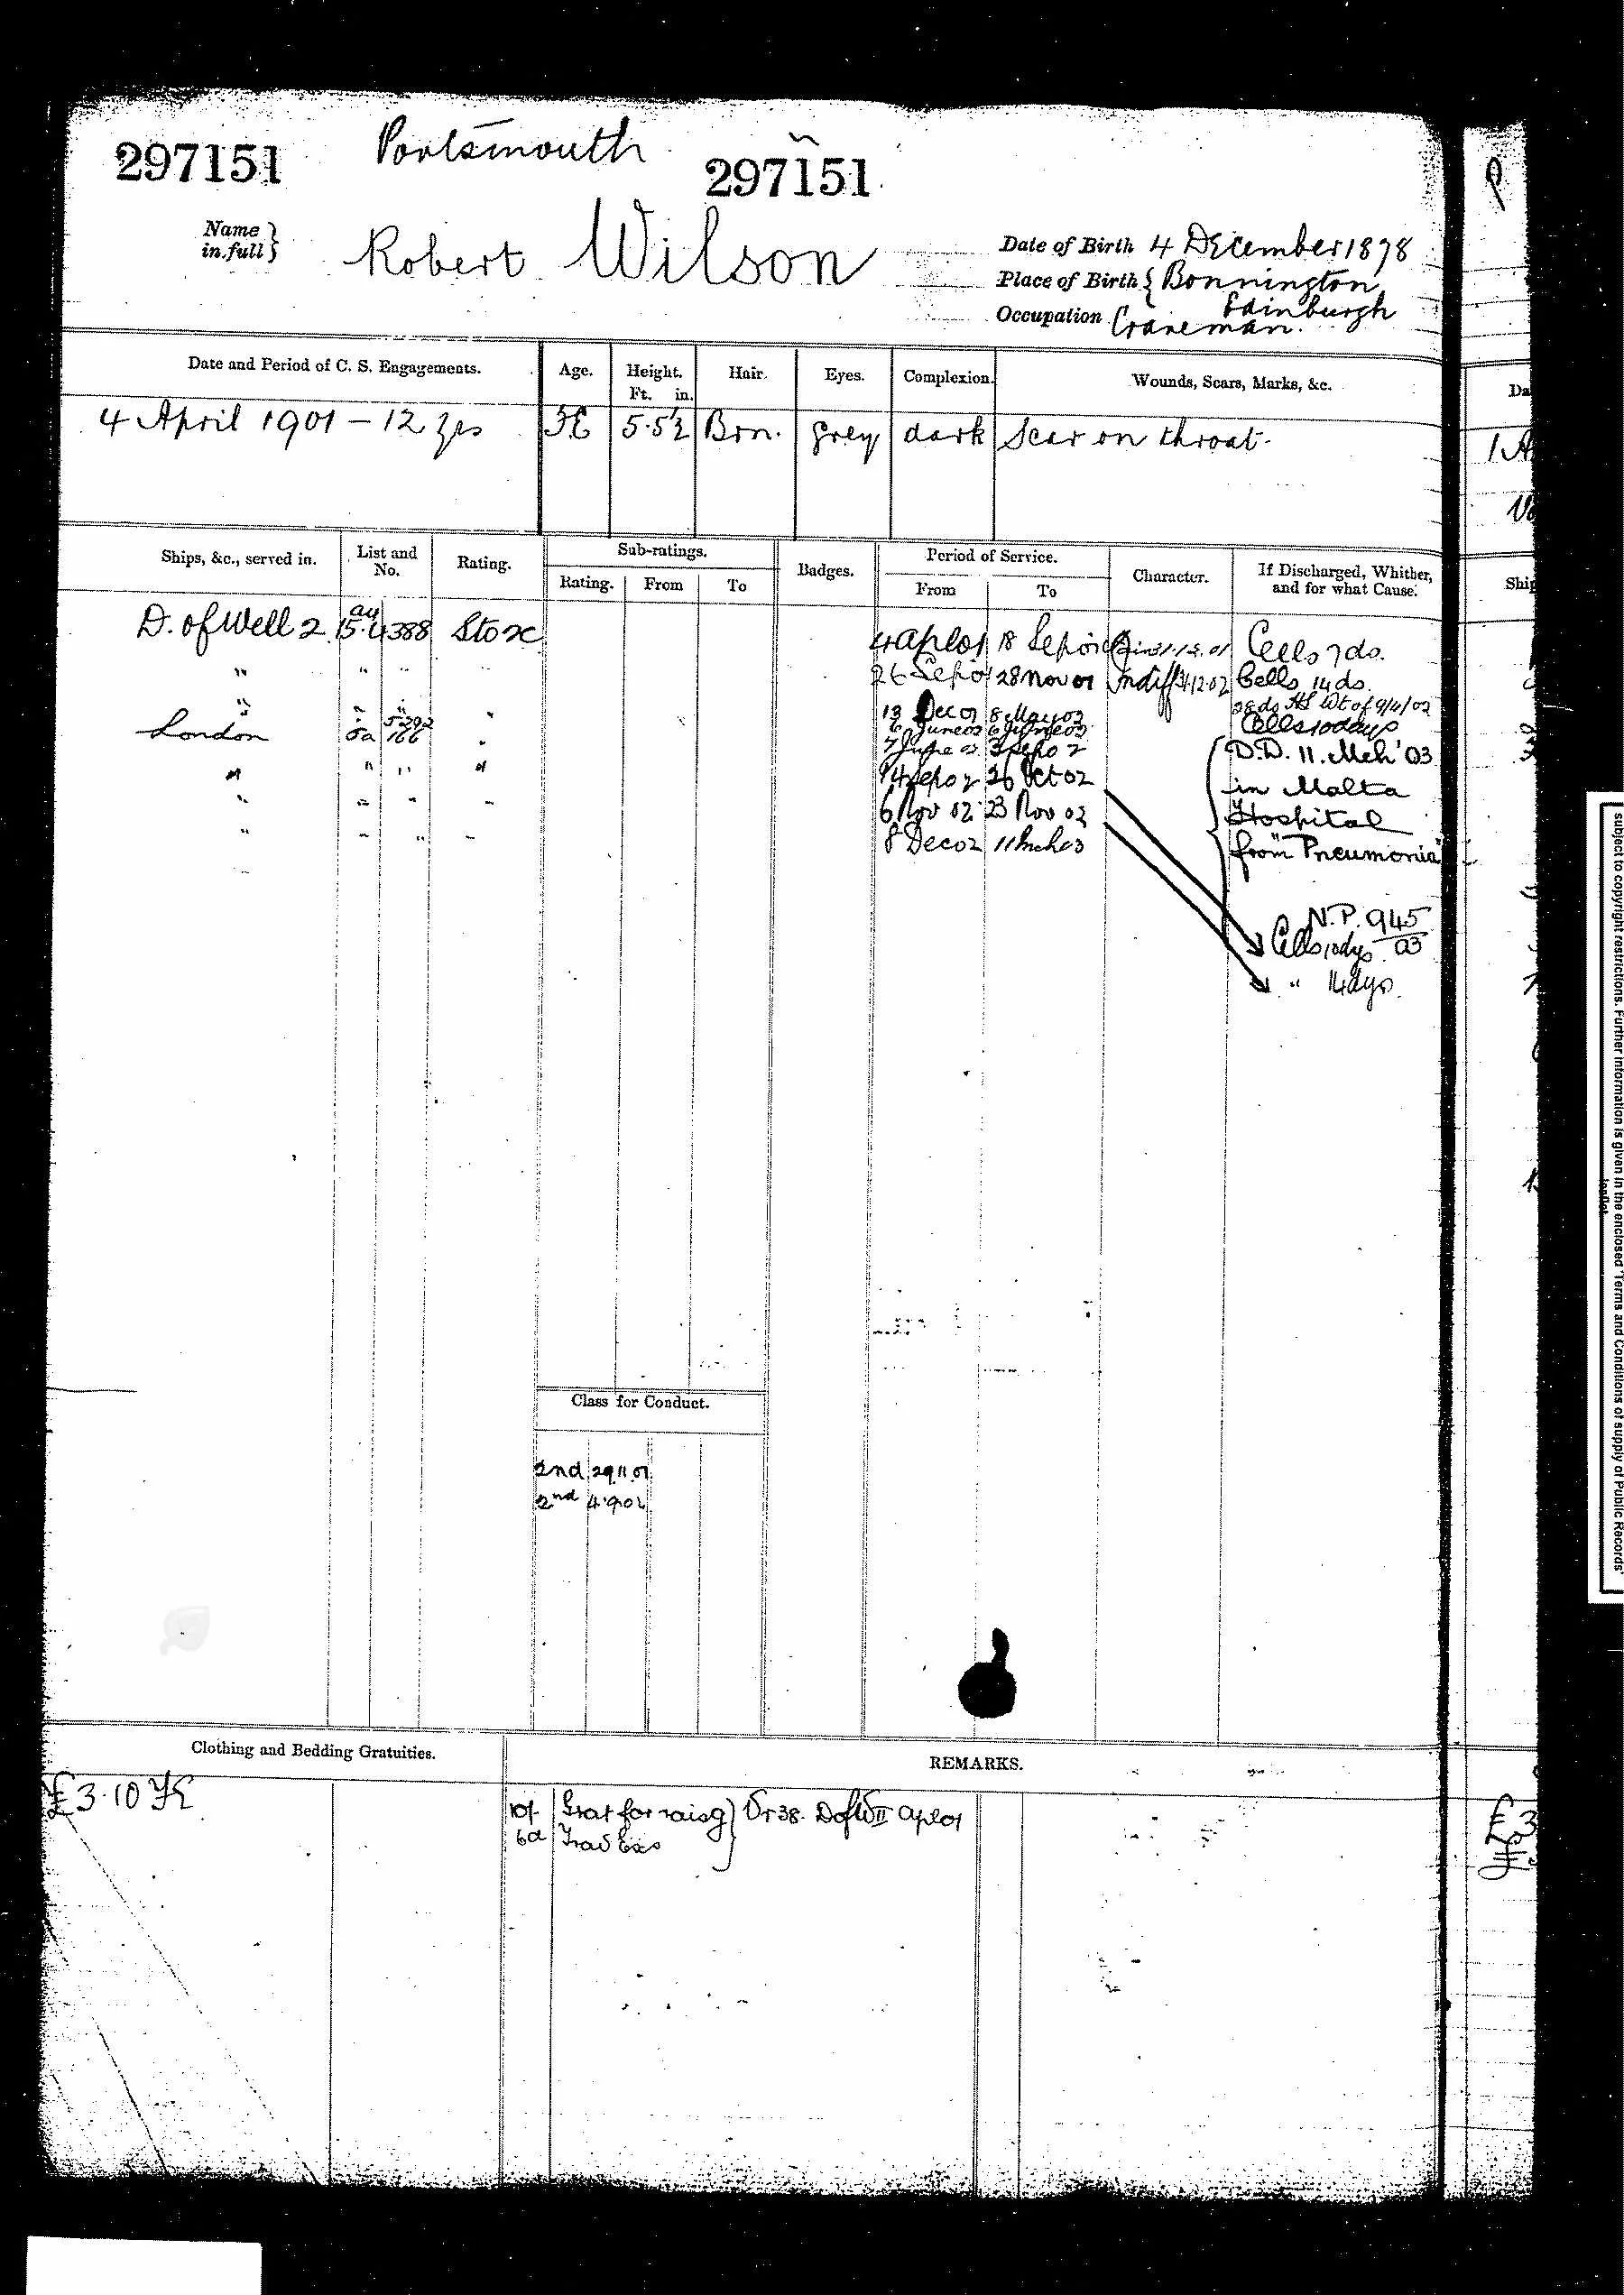 Portsmouth
297151 297151
Name in full } Robert Wilson
Date of Birth 4 December 1878
Place of Birth { Bonnington
Edinburgh
Occupation Craneman.
Date and Period of C. S. Engagements. Age. Height. Ft. in. Hair. Eyes. Complexion. Wounds, Scars, Marks, &c.
4 April 1901 – 12 yrs 5·5½ Brn. Grey dark Scar on throat.
Ships, &c., served in. List and No. Rating. Sub-ratings. Badges. Period of Service. Character. If Discharged, Whither, and for what Cause.
Rating. From To From To
D. of Well 2 15 4388 Sto 4 Apl 01 18 Sep 01 Cells 7 ds.
" " " 26 Sep 01 28 Nov 01 Indiff 31.12.02 Cells 14 ds.
28 ds Wt of 9/4/02
" " 5292 " 13 Dec 01 8 May 02 Cells 10 days
London 5a 166 " 6 June 02 6 June 02
7 June 02 3 Sep 02 D.D. 11. Mch '03
" " " " 14 Sep 02 26 Oct 02 in Malta
" " " " 6 Nov 02 23 Nov 02 Hospital
" " " " 8 Dec 02 11 Mch 03 from "Pneumonia"
N.P. 945
03
Cells 10 dys
" 14 dys.
Class for Conduct.
2nd 29.11.01
2nd 4.9.02
Clothing and Bedding Gratuities. REMARKS.
£3.10
10/- Grat for raisg } Qr 38. D of W II Apl 01
6d Trav Exs
Da
1 A
Ship
£3
subject to copyright restrictions. Further information is given in the enclosed 'Terms and Conditions of supply of Public Records'
leaflet.